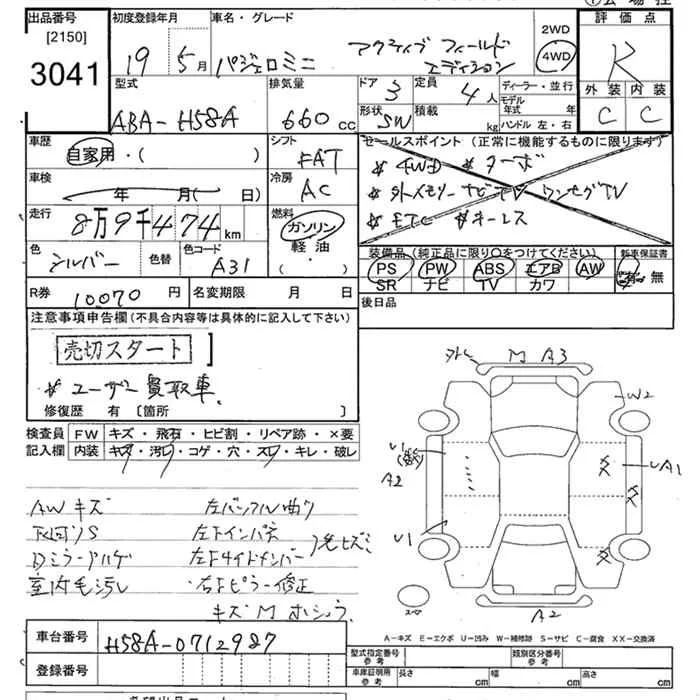 出品番号
[2150]
3041
初度登録年月
19年5月
車名・グレード
パジェロミニ
アクティブ フィールド
エディション
2WD
4WD
評価点
R
外装 内装
C C
型式
ABA-H58A
排気量
660 cc
ドア
3
定員
4人
形状
SW
積載
kg
ディーラー・並行
モデル年式 年
ハンドル 左・右
車歴
自家用・( )
シフト
FAT
車検
年 月( 日)
冷房
AC
走行
8万9千474km
燃料
ガソリン
軽油
( ・ )
色
シルバー
色替
色コード
A31
セールスポイント (正常に機能するものに限ります)
*4WD *ターボ
*外メモリーナビTV ワンセグTV
*ETC *キーレス
装備品 (純正品に限り○をつけてください)
新車保証書
PS PW ABS エアB AW
SR ナビ TV カワ
有・無
R券
10070円
名変期限 月 日
後日品
注意事項申告欄(不具合内容等は具体的に記入して下さい)
売切スタート
*ユーザー買取車
修復歴 有 [箇所 ]
検査員記入欄
FW キズ・飛石・ヒビ割・リペア跡・×要
内装 キズ・汚レ・コゲ・穴・スレ・キレ・破レ
AWキズ
下回りS
Dミラーハゲ
室内毛汚レ
左バッフル曲り
左下インパネ
左下サイドメンバー
右下ピラー修正
キズM
外レ M A3
W2
U1
(数)
A2
U1
UA1
スペア
A2
A-キズ E-エクボ U-凹み W-補修跡 S-サビ C-腐食 XX-交換済
車台番号
H58A-0712987
登録番号
型式指定番号 参考
類別区分番号 参考
車庫証明用 参考
長さ cm
幅 cm
高さ cm